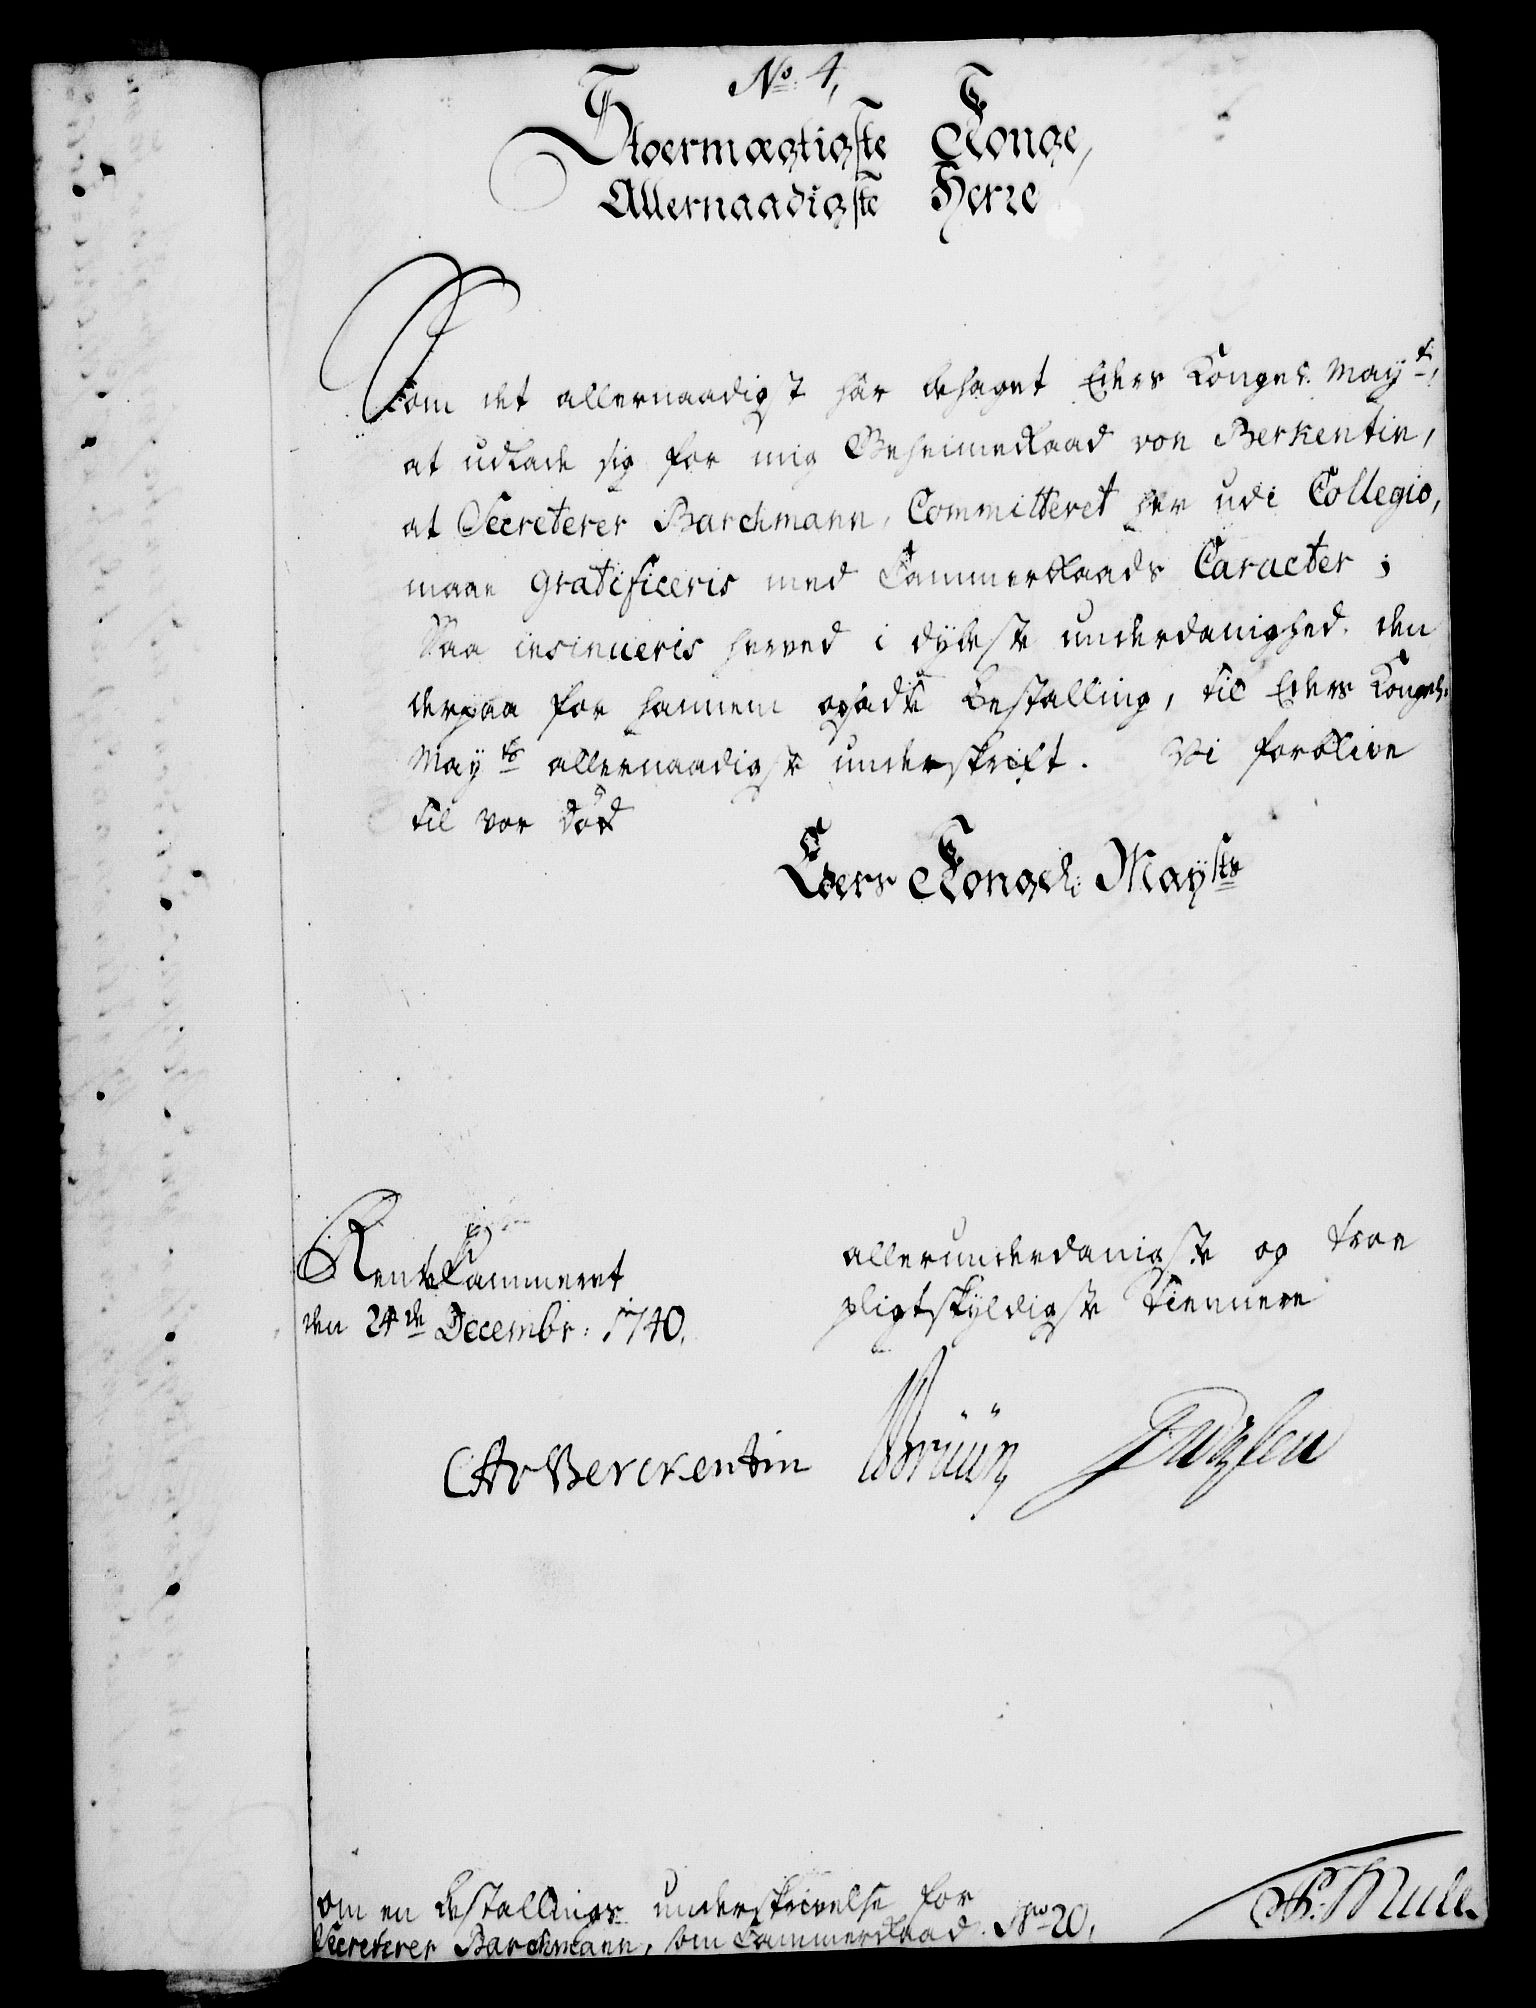 No. 4,
Stoermægtigste Konge,
Allernaadigste Herre
Som det allernaadigst har behaget Eders Kongel. Mayt,
at udlade sig for mig Geheimeraad von Berkentin,
at Secreterer Barchmann, Committeret her udi Collegio,
maae gratificeris med Cammerraads Caracter;
Saa insinueris herved i dybeste underdanighed den
derpaa for hannem opsadte Bestalling, til Eders Kongel.
Mayts allernaadigste underskrift. Vi forblive
til vor død
Eders Kongel: Maysts
RenteKammeret
den 24de Decembr: 1740.
allerunderdanigste og troe
pligtskyldigste tiennere
CAvBerckentin Bruün
om en Bestallings underskrivelse for
Secreterer Barchmann, som Cammerraad. No 20.